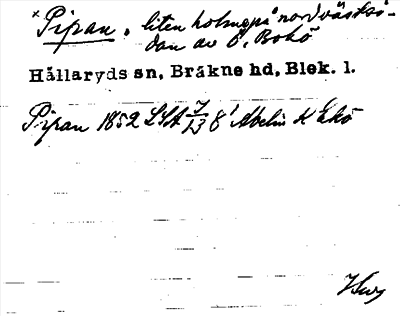 * Pipan, liten holme på nordvästsi-
dan av Ö. Bokö
Hällaryds sn, Bräkne hd, Blek. l.
Pipan 1852 LSA 7/13 8¹ Abelin K Ekö